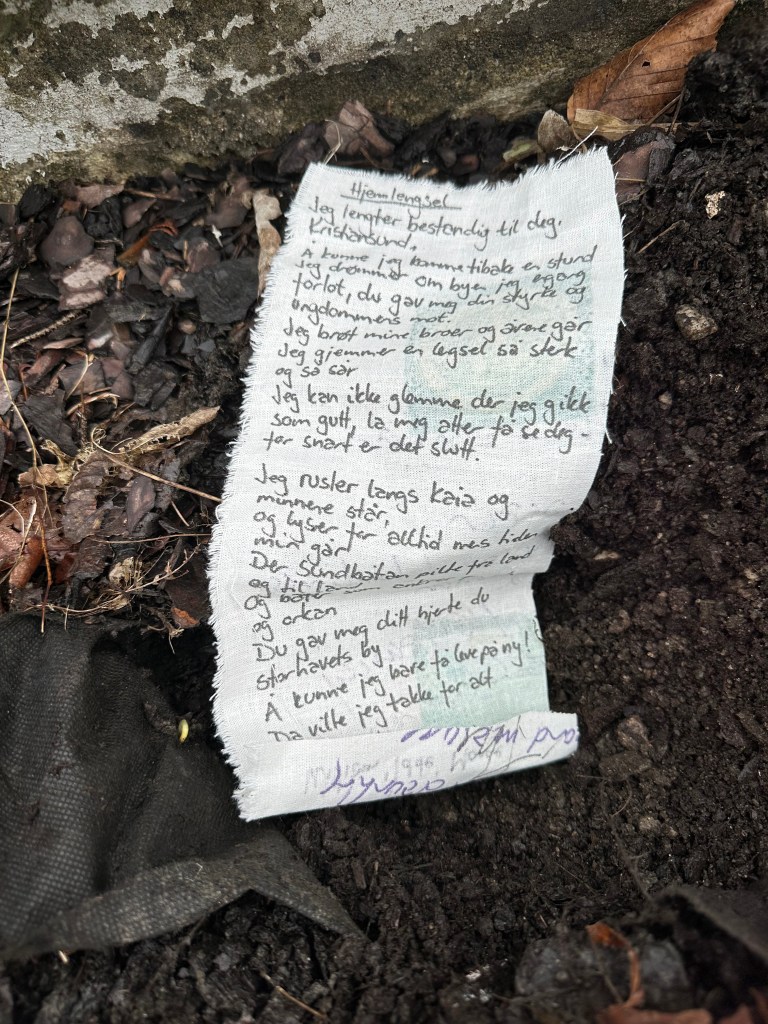 Hjemlengsel
Jeg lengter bestandig til deg.
Kristiansund.
Å kunne jeg komme tibake en stund
Jeg drømmer om byen jeg engang
forlot, du gav meg din styrke og
ungdommens mot.
Jeg brøt mine broer og årene går
Jeg gjemmer en legsel så sterk
og så sår
Jeg kan ikke glemme der jeg gikk
som gutt, la meg atter få se deg -
før snart er det slutt.
Jeg rusler langs kaia og
minnene står,
og lyser for alltid mens tiden
min går
Der Sundbåtan pilte fra land
og til land som
og bare
og orkan
Du gav meg ditt hjerte du
storhavets by
Å kunne jeg bare få leve på ny!
Da ville jeg takke for alt